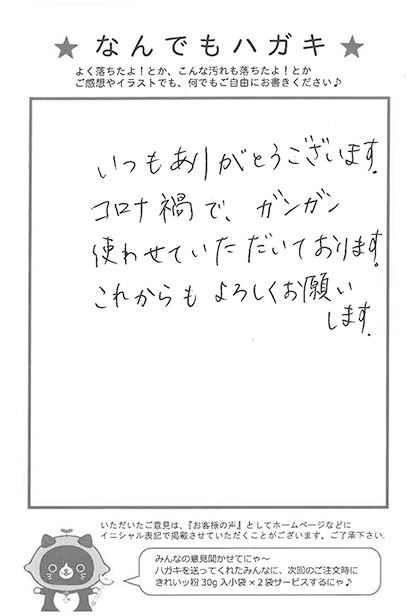 ★ なんでもハガキ ★
よく落ちたよ！とか、こんな汚れも落ちたよ！とか
ご感想やイラストでも、何でもご自由にお書きください♪
いつもありがとうございます。
コロナ禍で、ガンガン
使わせていただいております。
これからもよろしくお願い
します。
いただいたご意見は、『お客様の声』としてホームページなどに
イニシャル表記で掲載させていただくことがございます。ご了承下さい。
みんなの意見聞かせてにゃ〜
ハガキを送ってくれたみんなに、次回のご注文時に
きれいッ粉 30g 入小袋 × 2 袋サービスするにゃ♪